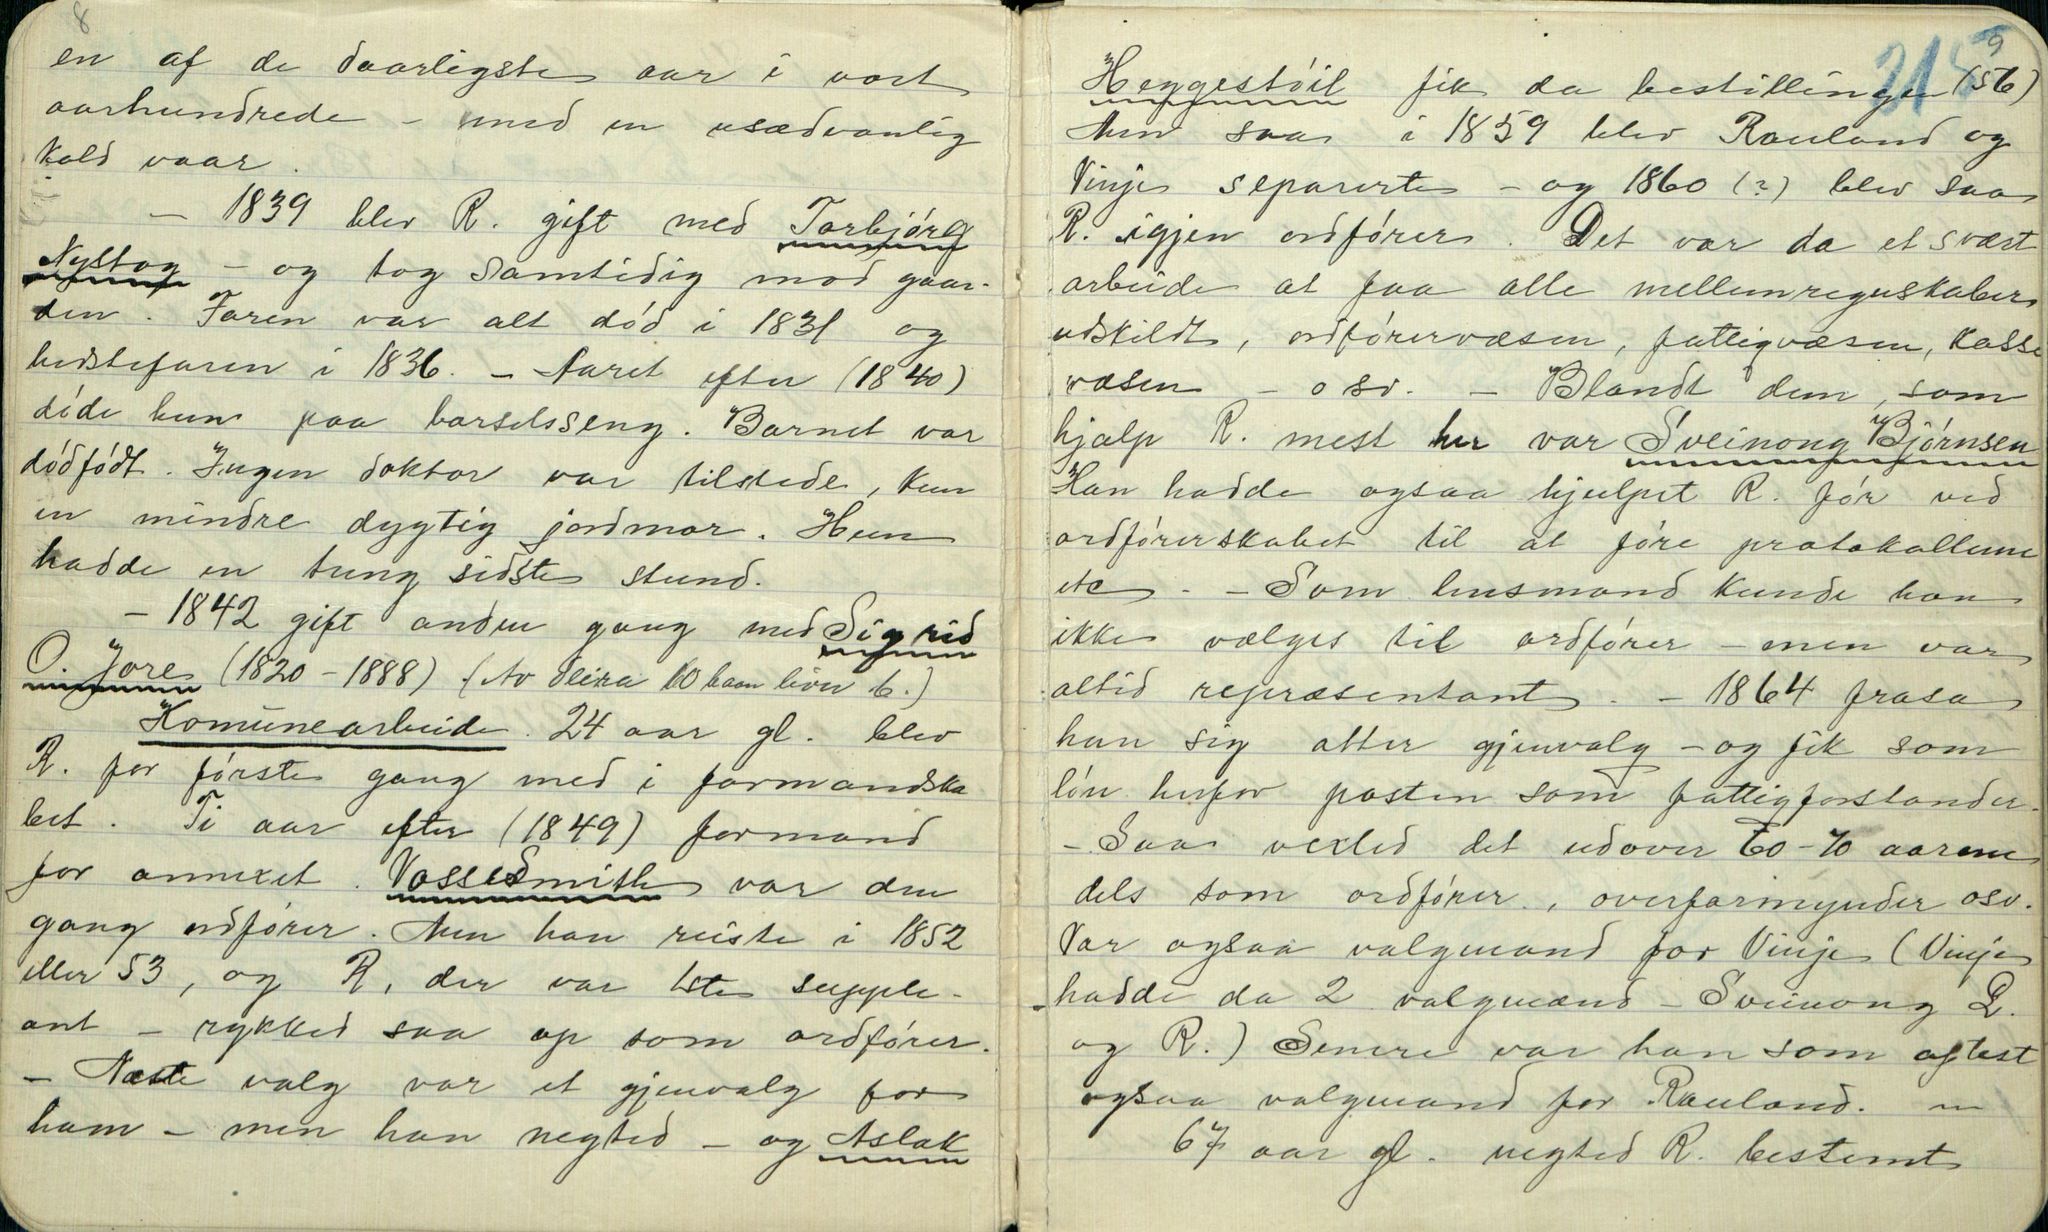 8
en af de daarligste aar i vort
aarhundrede - med en usædvanlig
kold vaar.
- 1839 blev R. gift med Torbjórg
Nystog - og tog samtidig mod gaar-
den. Faren var alt död i 1831 og
bedstefaren i 1836. - Aaret efter (1840)
döde hun paa barselsseng. Barnet var
dódfódt. Ingen doktor var tilstede, kun
en mindre dygtig jordmor. Hun
hadde en tung sidste stund.
- 1842 gift anden gang med Sigrid
O. Jore (1820-1888) (Av deira 10 baan liver 6.)
Komünearbeide. 24 aar gl. blev
R. for förste gang med i formandska
bet. Ti aar efter (1849) formand
for annexet. Vosse Smith var den
gang ordfórer. Men han reiste i 1852
eller 53, og R, der var 1ste supple-
ant - rykked saa op som ordfórer.
- Næste valg var et gjenvalg for
ham - men han negted - og Aslak
9
215
Heggestóil fik da bestillingen (56)
Men saa i 1859 blev Rauland og
Vinje separerte - og 1860 (?) blev saa
R. igjen ordfórer. Det var da et svært
arbeide at faa alle mellemregnskaber
udskildt, ordfórervæsen, fattigvæsen, kasse
væsen - osv. - Blandt dem, som
hjalp R. mest her var Sveinong Björnsen
Han hadde ogsaa hjulpet R. fór ved
ordfórerskabet til at fóre protokollerne
etc. - Som husmand kunde han
ikke vælges til ordfórer - men var
altid repræsentant. - 1864 frasa
han sig atter gjenvalg - og fik som
lón herfor posten som fattigforstander.
- Saa vexled det udover 60-70 aarene
dels som ordfórer, overformynder osv.
Var ogsaa valgmand for Vinje (Vinje
hadde da 2 valgmænd - Sveinong L.
og R.) Senere var han som oftest
ogsaa valgmand for Rauland. -
67 aar gl. negted R. bestemt